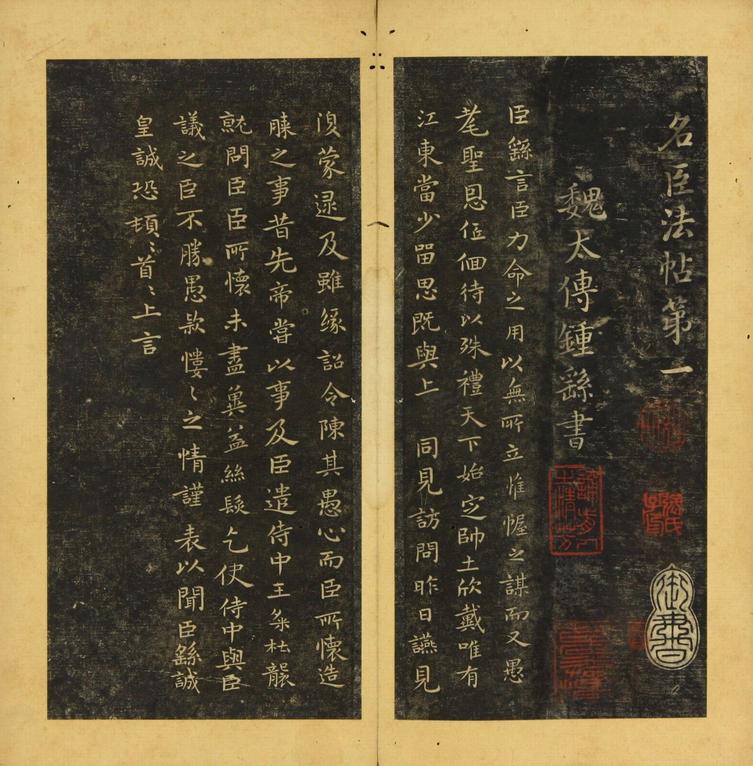 名臣法帖第一
魏太傅鍾繇書
臣繇言臣力命之用以無所立惟幄之謀而又愚
耄聖恩低佪待以殊禮天下始定帥土欣戴唯有
江東當少留思既與上 同見訪問昨日讌見
復蒙逮及雖緣詔令陳其愚心而臣所懷造
膝之事昔先帝嘗以事及臣遣侍中王粲杜襲
就問臣臣所懷未盡冀益絲髮乞使侍中與臣
議之臣不勝愚款慺〻之情謹 表以聞臣繇誠
皇誠恐頓〻首〻上言